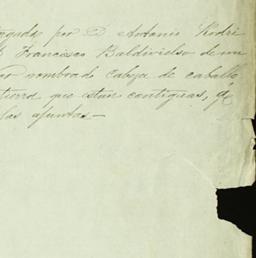 por D. Antonio Rodri
Francisco Baldivielso de un
nombrado Cabeza de caballo
tierra que estan contiguas, q.
las ajuntas.—